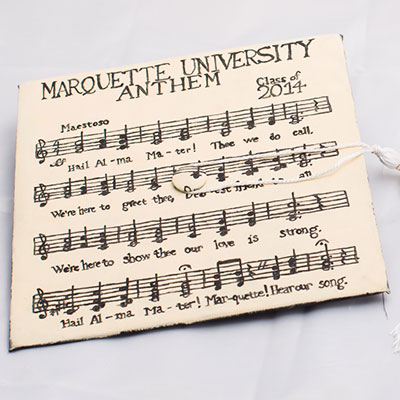 MARQUETTE UNIVERSITY
ANTHEM
Class of
2014
Maestoso
ff
Hail Al-ma Ma-ter! Thee we do call.
We're here to greet thee, Dear-est friend all
We're here to show thee our love is strong.
Hail Al-ma Ma-ter! Mar-quette! Hear our song.